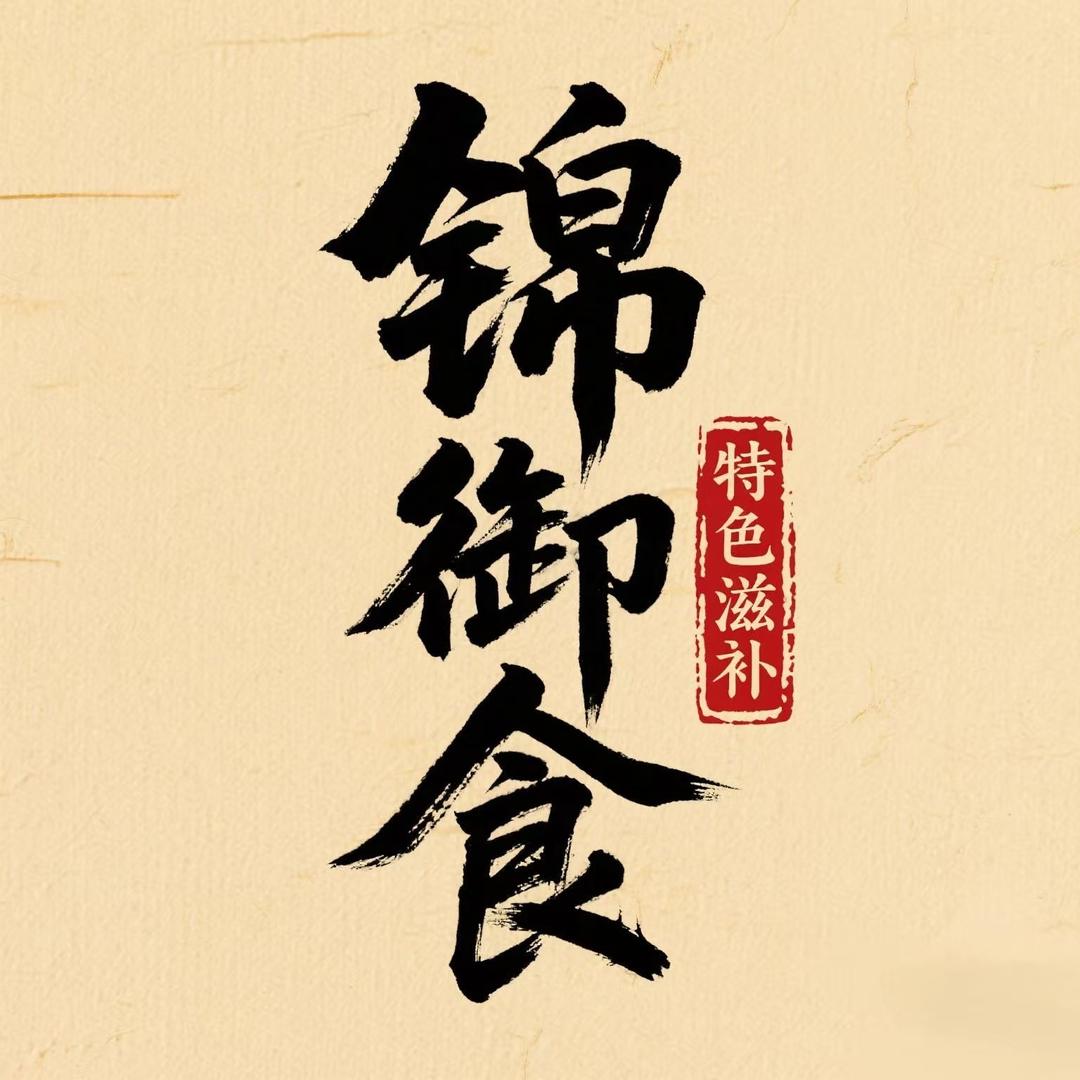 锦御食
特色滋补